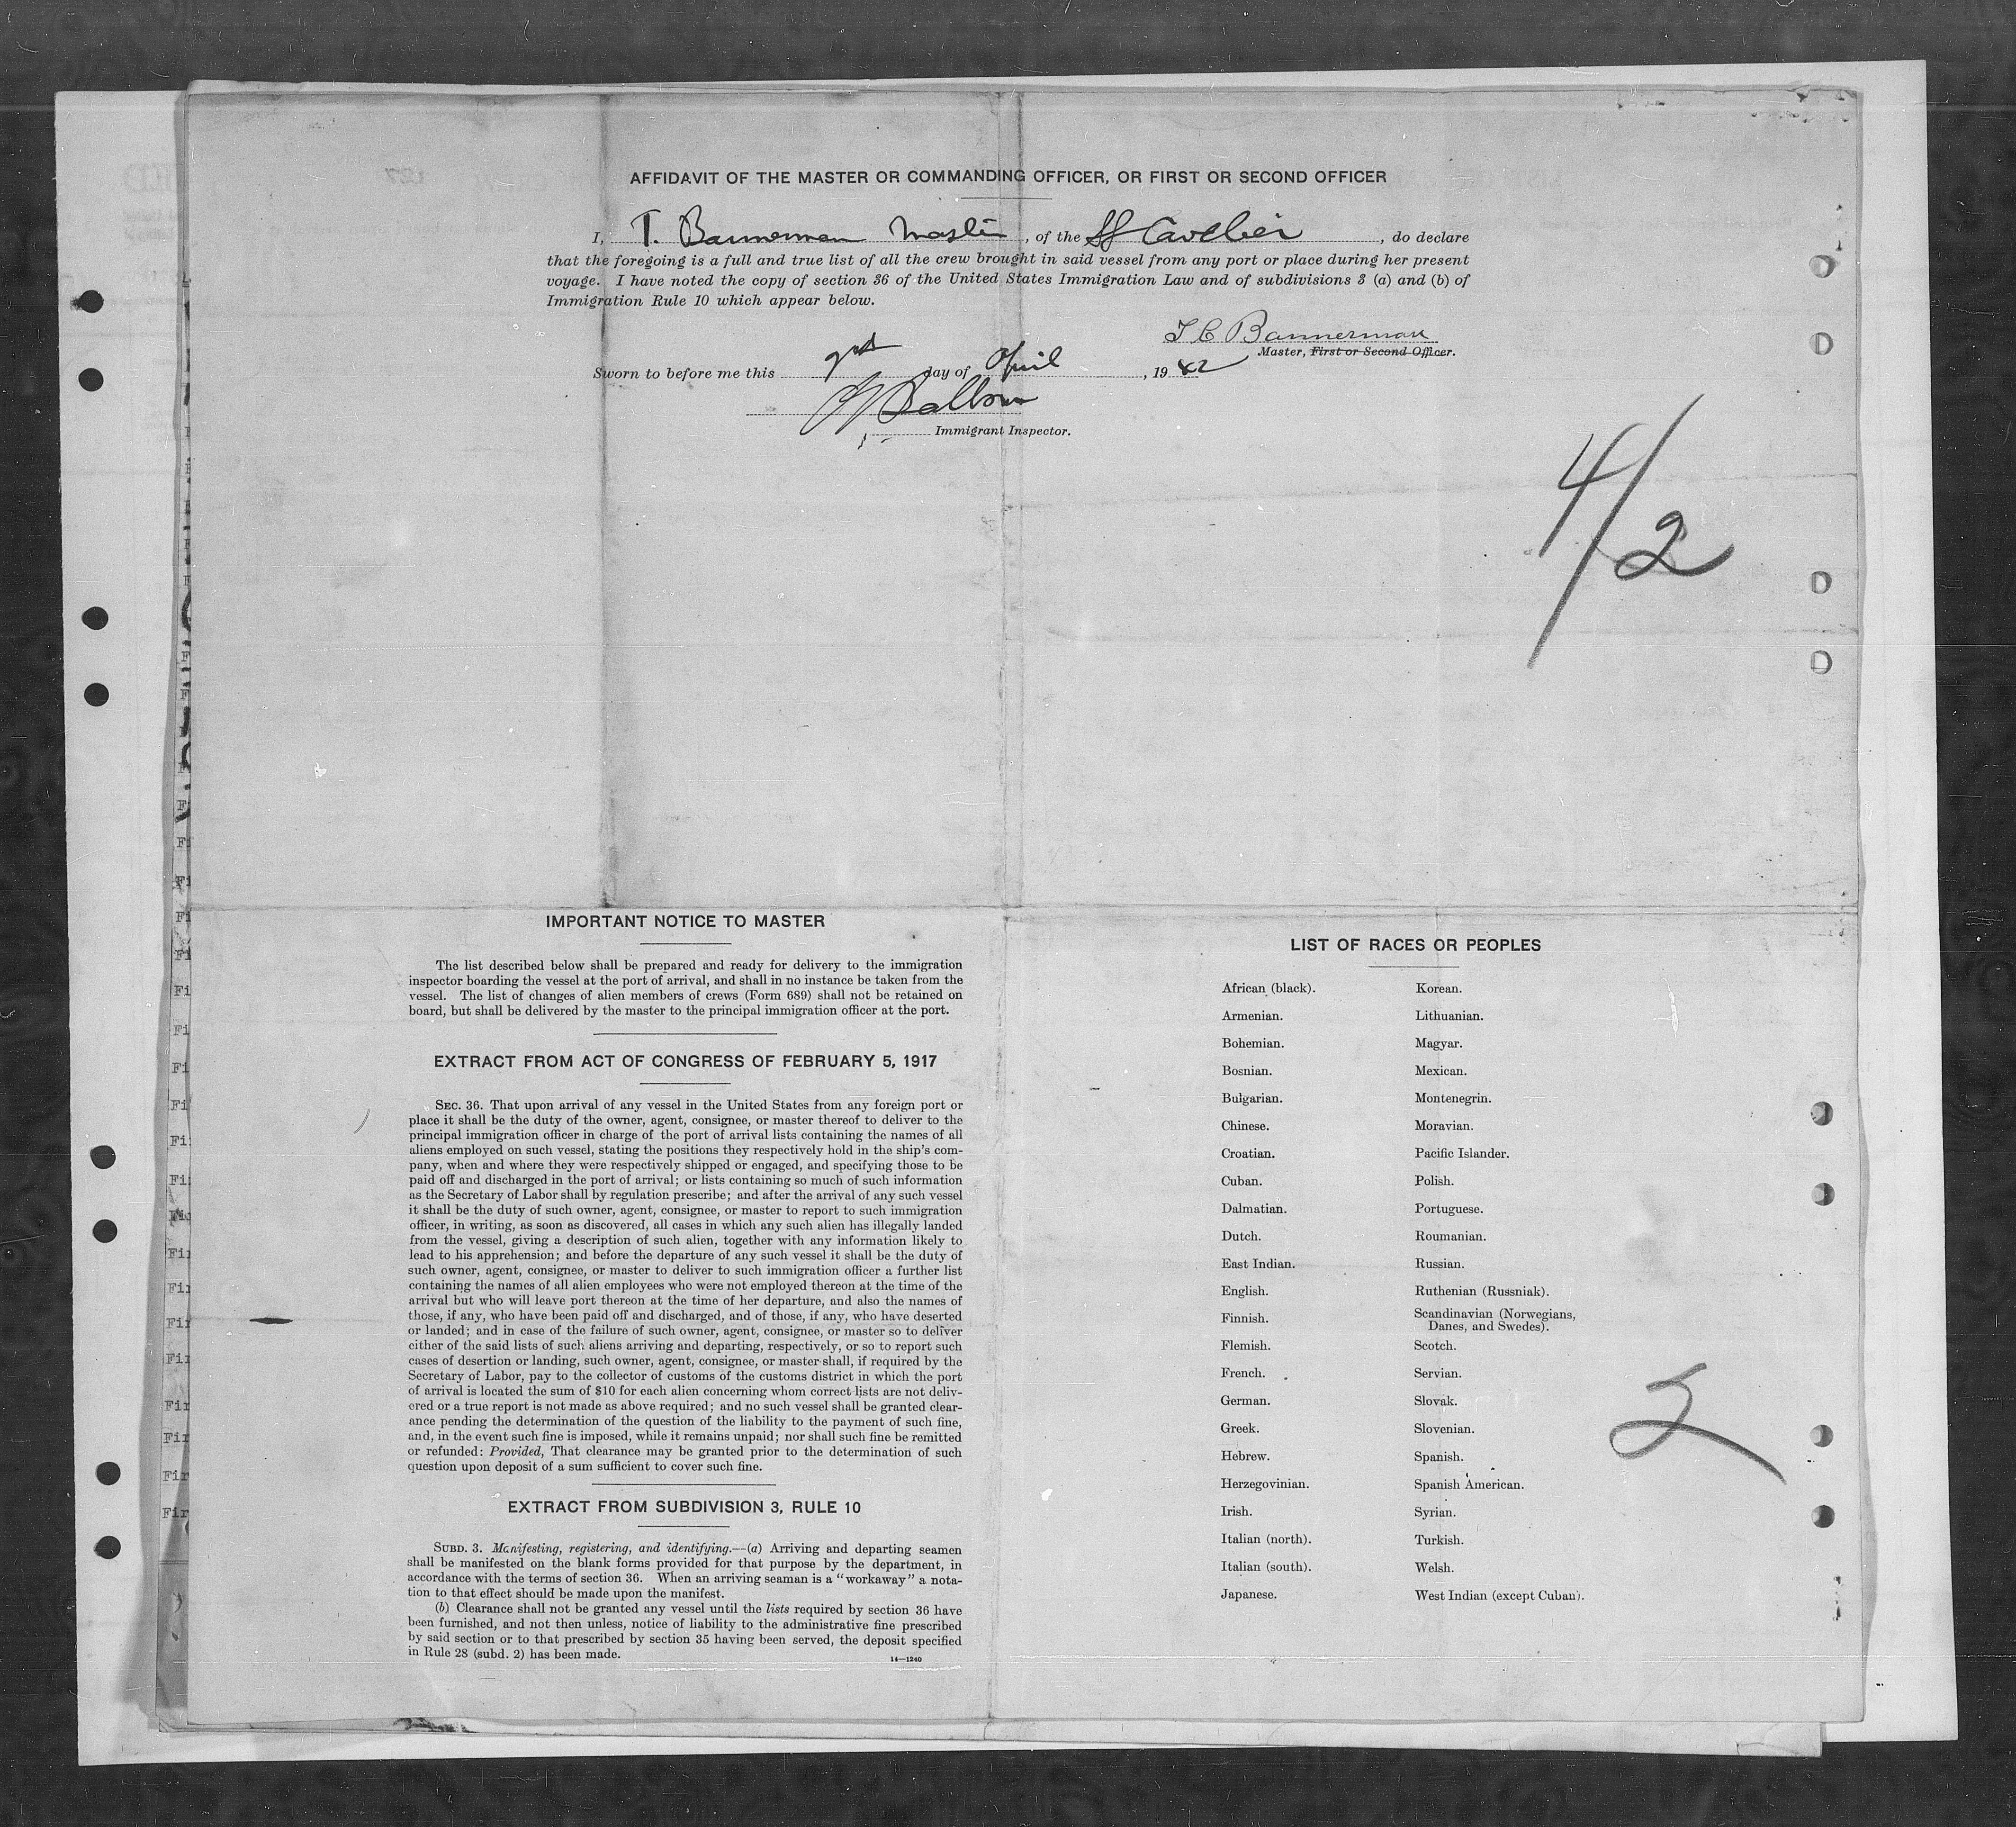 AFFIDAVIT OF THE MASTER OR COMMANDING OFFICER, OR FIRST OR SECOND OFFICER
I, T. Bannerman Master, of the SS Cavelier, do declare
that the foregoing is a full and true list of all the crew brought in said vessel from any port or place during her present
voyage. I have noted the copy of section 36 of the United States Immigration Law and of subdivisions 3 (a) and (b) of
Immigration Rule 10 which appear below.
T C Bannerman
Master, First or Second Officer.
Sworn to before me this 2nd day of April, 19 42
Immigrant Inspector.
4/2
IMPORTANT NOTICE TO MASTER
The list described below shall be prepared and ready for delivery to the immigration
inspector boarding the vessel at the port of arrival, and shall in no instance be taken from the
vessel. The list of changes of alien members of crews (Form 689) shall not be retained on
board, but shall be delivered by the master to the principal immigration officer at the port.
EXTRACT FROM ACT OF CONGRESS OF FEBRUARY 5, 1917
SEC. 36. That upon arrival of any vessel in the United States from any foreign port or
place it shall be the duty of the owner, agent, consignee, or master thereof to deliver to the
principal immigration officer in charge of the port of arrival lists containing the names of all
aliens employed on such vessel, stating the positions they respectively hold in the ship's com-
pany, when and where they were respectively shipped or engaged, and specifying those to be
paid off and discharged in the port of arrival; or lists containing so much of such information
as the Secretary of Labor shall by regulation prescribe; and after the arrival of any such vessel
it shall be the duty of such owner, agent, consignee, or master to report to such immigration
officer, in writing, as soon as discovered, all cases in which any such alien has illegally landed
from the vessel, giving a description of such alien, together with any information likely to
lead to his apprehension; and before the departure of any such vessel it shall be the duty of
such owner, agent, consignee, or master to deliver to such immigration officer a further list
containing the names of all alien employees who were not employed thereon at the time of the
arrival but who will leave port thereon at the time of her departure, and also the names of
those, if any, who have been paid off and discharged, and of those, if any, who have deserted
or landed; and in case of the failure of such owner, agent, consignee, or master so to deliver
either of the said lists of such aliens arriving and departing, respectively, or so to report such
cases of desertion or landing, such owner, agent, consignee, or master shall, if required by the
Secretary of Labor, pay to the collector of customs of the customs district in which the port
of arrival is located the sum of $10 for each alien concerning whom correct lists are not deliv-
ered or a true report is not made as above required; and no such vessel shall be granted clear-
ance pending the determination of the question of the liability to the payment of such fine,
and, in the event such fine is imposed, while it remains unpaid; nor shall such fine be remitted
or refunded: Provided, That clearance may be granted prior to the determination of such
question upon deposit of a sum sufficient to cover such fine.
EXTRACT FROM SUBDIVISION 3, RULE 10
SUBD. 3. Manifesting, registering, and identifying.—(a) Arriving and departing seamen
shall be manifested on the blank forms provided for that purpose by the department, in
accordance with the terms of section 36. When an arriving seaman is a "workaway" a nota-
tion to that effect should be made upon the manifest.
(b) Clearance shall not be granted any vessel until the lists required by section 36 have
been furnished, and not then unless, notice of liability to the administrative fine prescribed
by said section or to that prescribed by section 35 having been served, the deposit specified
in Rule 28 (subd. 2) has been made.
14—1240
LIST OF RACES OR PEOPLES
African (black). Korean.
Armenian. Lithuanian.
Bohemian. Magyar.
Bosnian. Mexican.
Bulgarian. Montenegrin.
Chinese. Moravian.
Croatian. Pacific Islander.
Cuban. Polish.
Dalmatian. Portuguese.
Dutch. Roumanian.
East Indian. Russian.
English. Ruthenian (Russniak).
Finnish. Scandinavian (Norwegians,
Danes, and Swedes).
Flemish. Scotch.
French. Servian.
German. Slovak.
Greek. Slovenian.
Hebrew. Spanish.
Herzegovinian. Spanish American.
Irish. Syrian.
Italian (north). Turkish.
Italian (south). Welsh.
Japanese. West Indian (except Cuban).